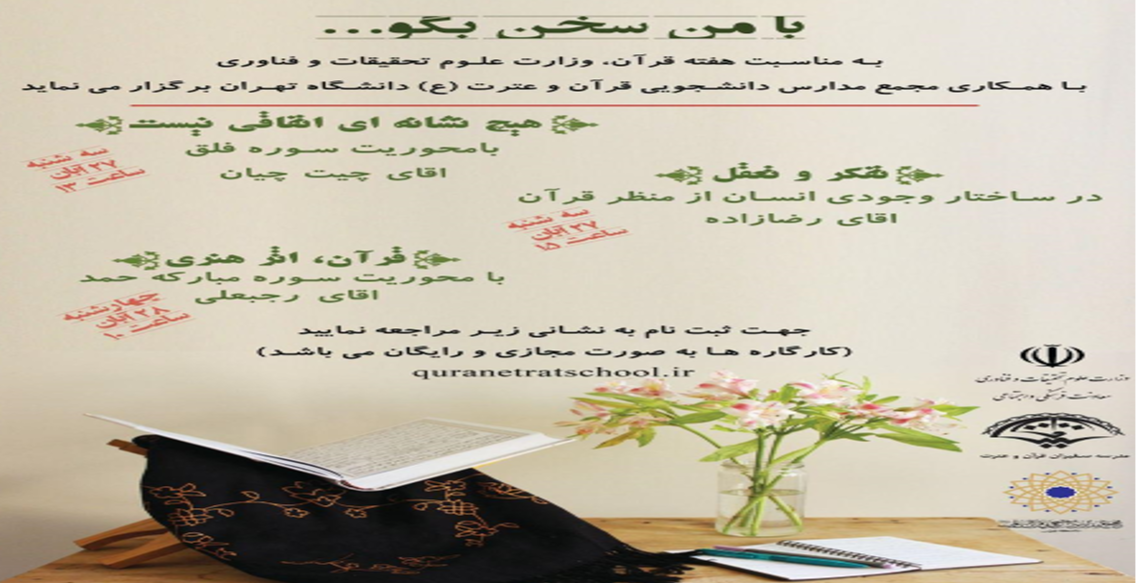 با من سخن بگو...
به مناسبت هفته قرآن، وزارت علوم تحقیقات و فناوری
با همکاری مجمع مدارس دانشجویی قرآن و عترت (ع) دانشگاه تهران برگزار می نماید
هیچ نشانه ای اتفاقی نیست
بامحوریت سوره فلق
اقای چیت چیان
سه شنبه
۲۷ آبان
ساعت ۱۳
تفکر و تعقل
در ساختار وجودی انسان از منظر قرآن
اقای رضازاده
سه شنبه
۲۷ آبان
ساعت ۱۵
قرآن، اثر هنری
با محوریت سوره مبارکه حمد
اقای رجبعلی
چهارشنبه
۲۸ آبان
ساعت ۱۰
جهت ثبت نام به نشانی زیر مراجعه نمایید
(کارگاره ها به صورت مجازی و رایگان می باشد)
quranetratschool.ir
وزارت علوم تحقیقات و فناوری
معاونت فرهنگی و اجتماعی
مدرسه سفیران قرآن و عترت